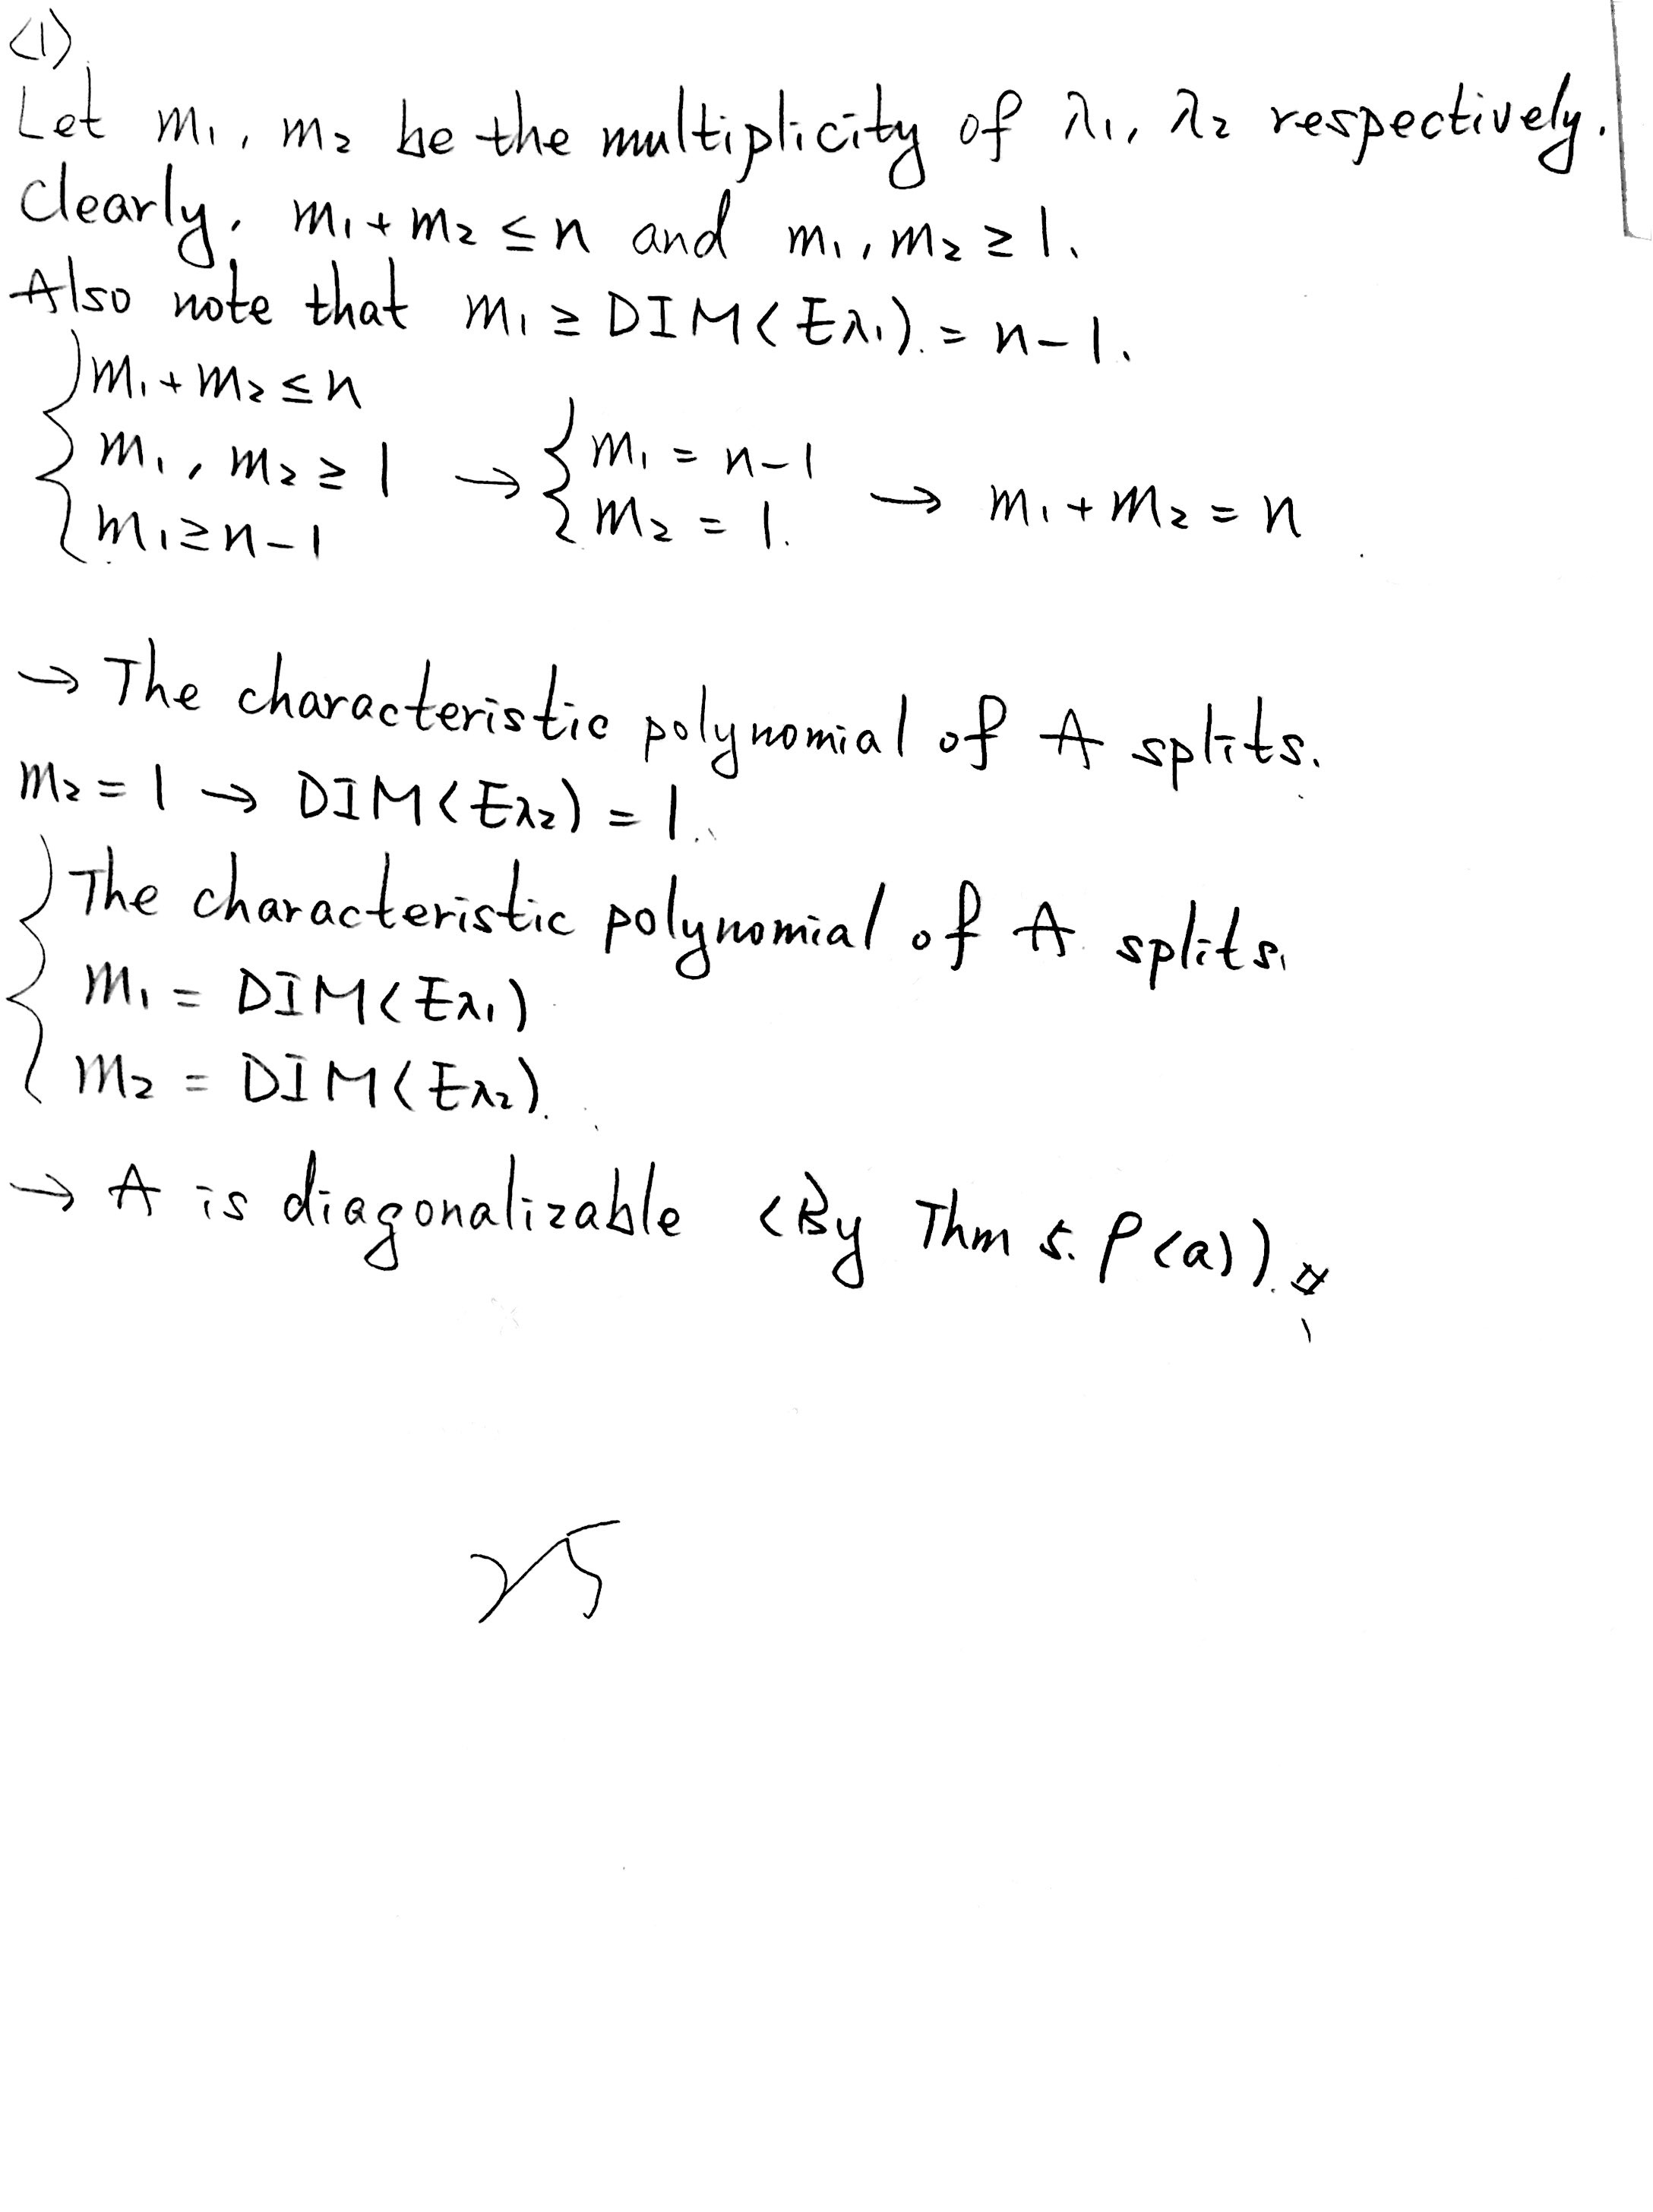 <1>
Let m₁, m₂ be the multiplicity of λ₁, λ₂ respectively.
Clearly, m₁+m₂ ≤ n and m₁, m₂ ≥ 1.
Also note that m₁ ≥ DIM(Eλ₁) = n-1.
m₁+m₂ ≤ n
m₁, m₂ ≥ 1 → { m₁ = n-1 → m₁+m₂ = n
m₁ ≥ n-1 { m₂ = 1.
→ The characteristic polynomial of A splits.
m₂ = 1 → DIM(Eλ₂) = 1.
{ The characteristic polynomial of A splits.
m₁ = DIM(Eλ₁)
m₂ = DIM(Eλ₂).
→ A is diagonalizable (By Thm 5.